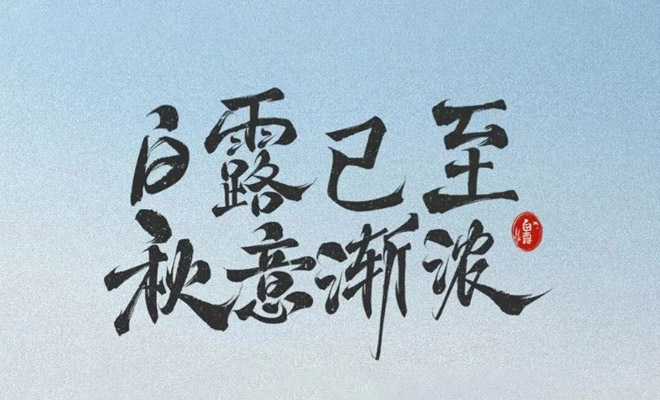 白露已至
秋意渐浓
白露